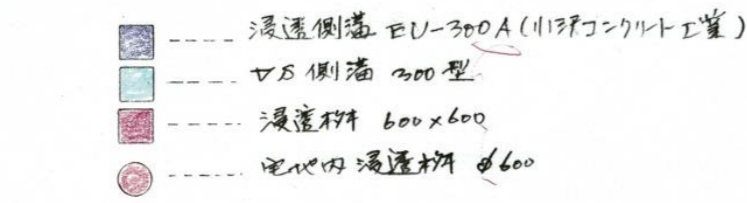 浸透側溝 EU-300A(小沢コンクリート工業)
VS側溝 300型
浸透桝 600×600
宅地内浸透桝 φ600